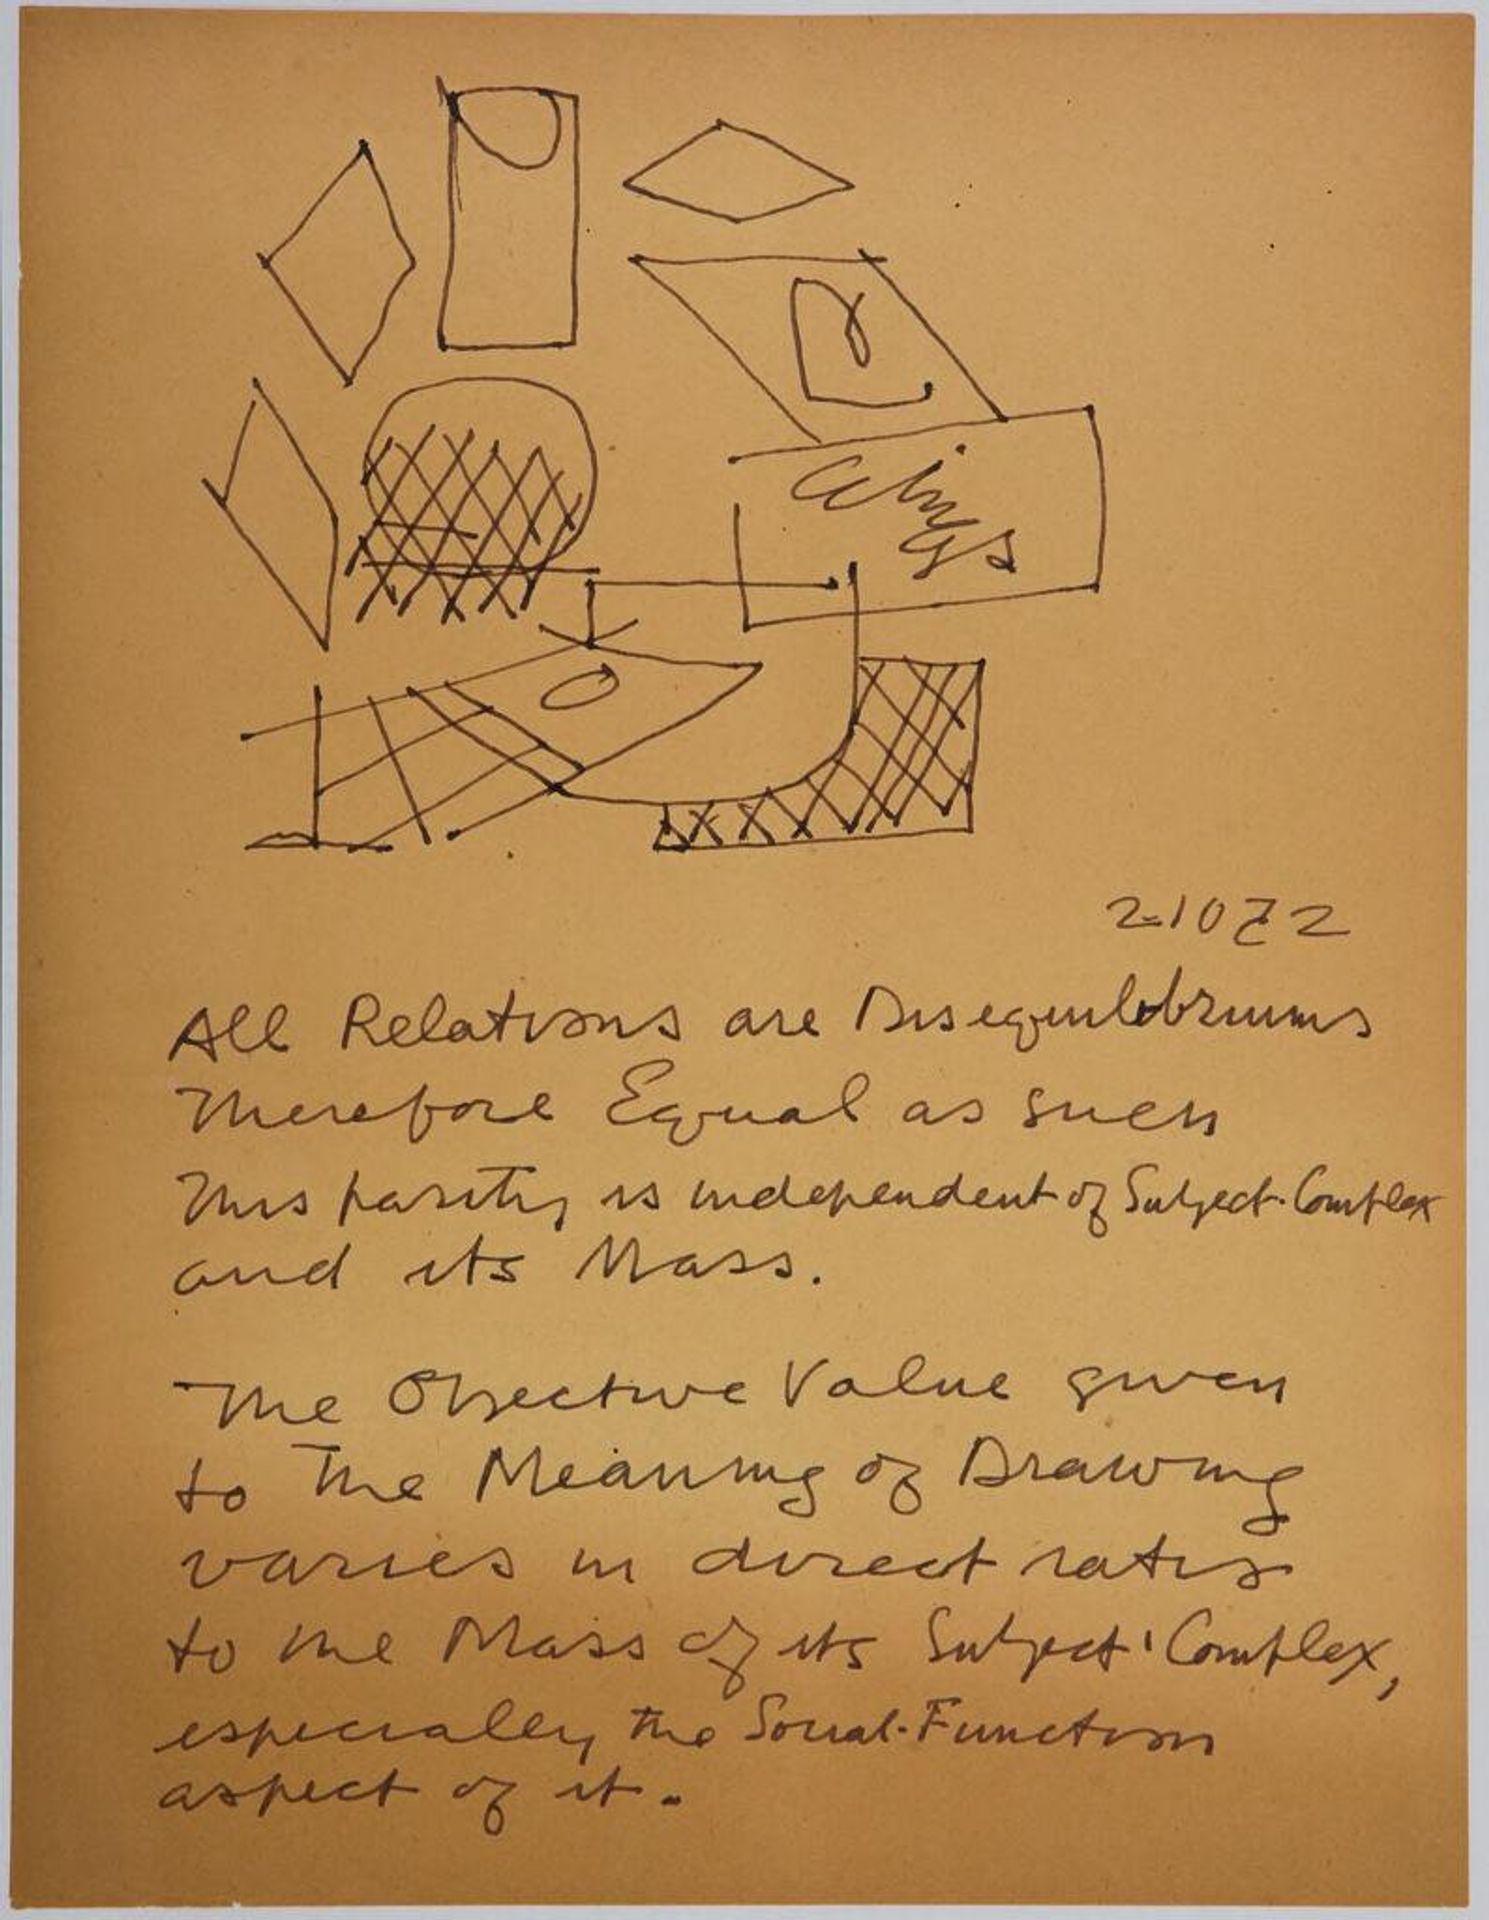 2-10 72
All Relations are Disequilibriums
Therefore Equal as such
This parity is independent of Subject-Complex
and its Mass.
The Objective Value given
to the Meaning of Drawing
varies in direct ratio
to the Mass of its Subject-Complex,
especially the Social-Function
aspect of it.